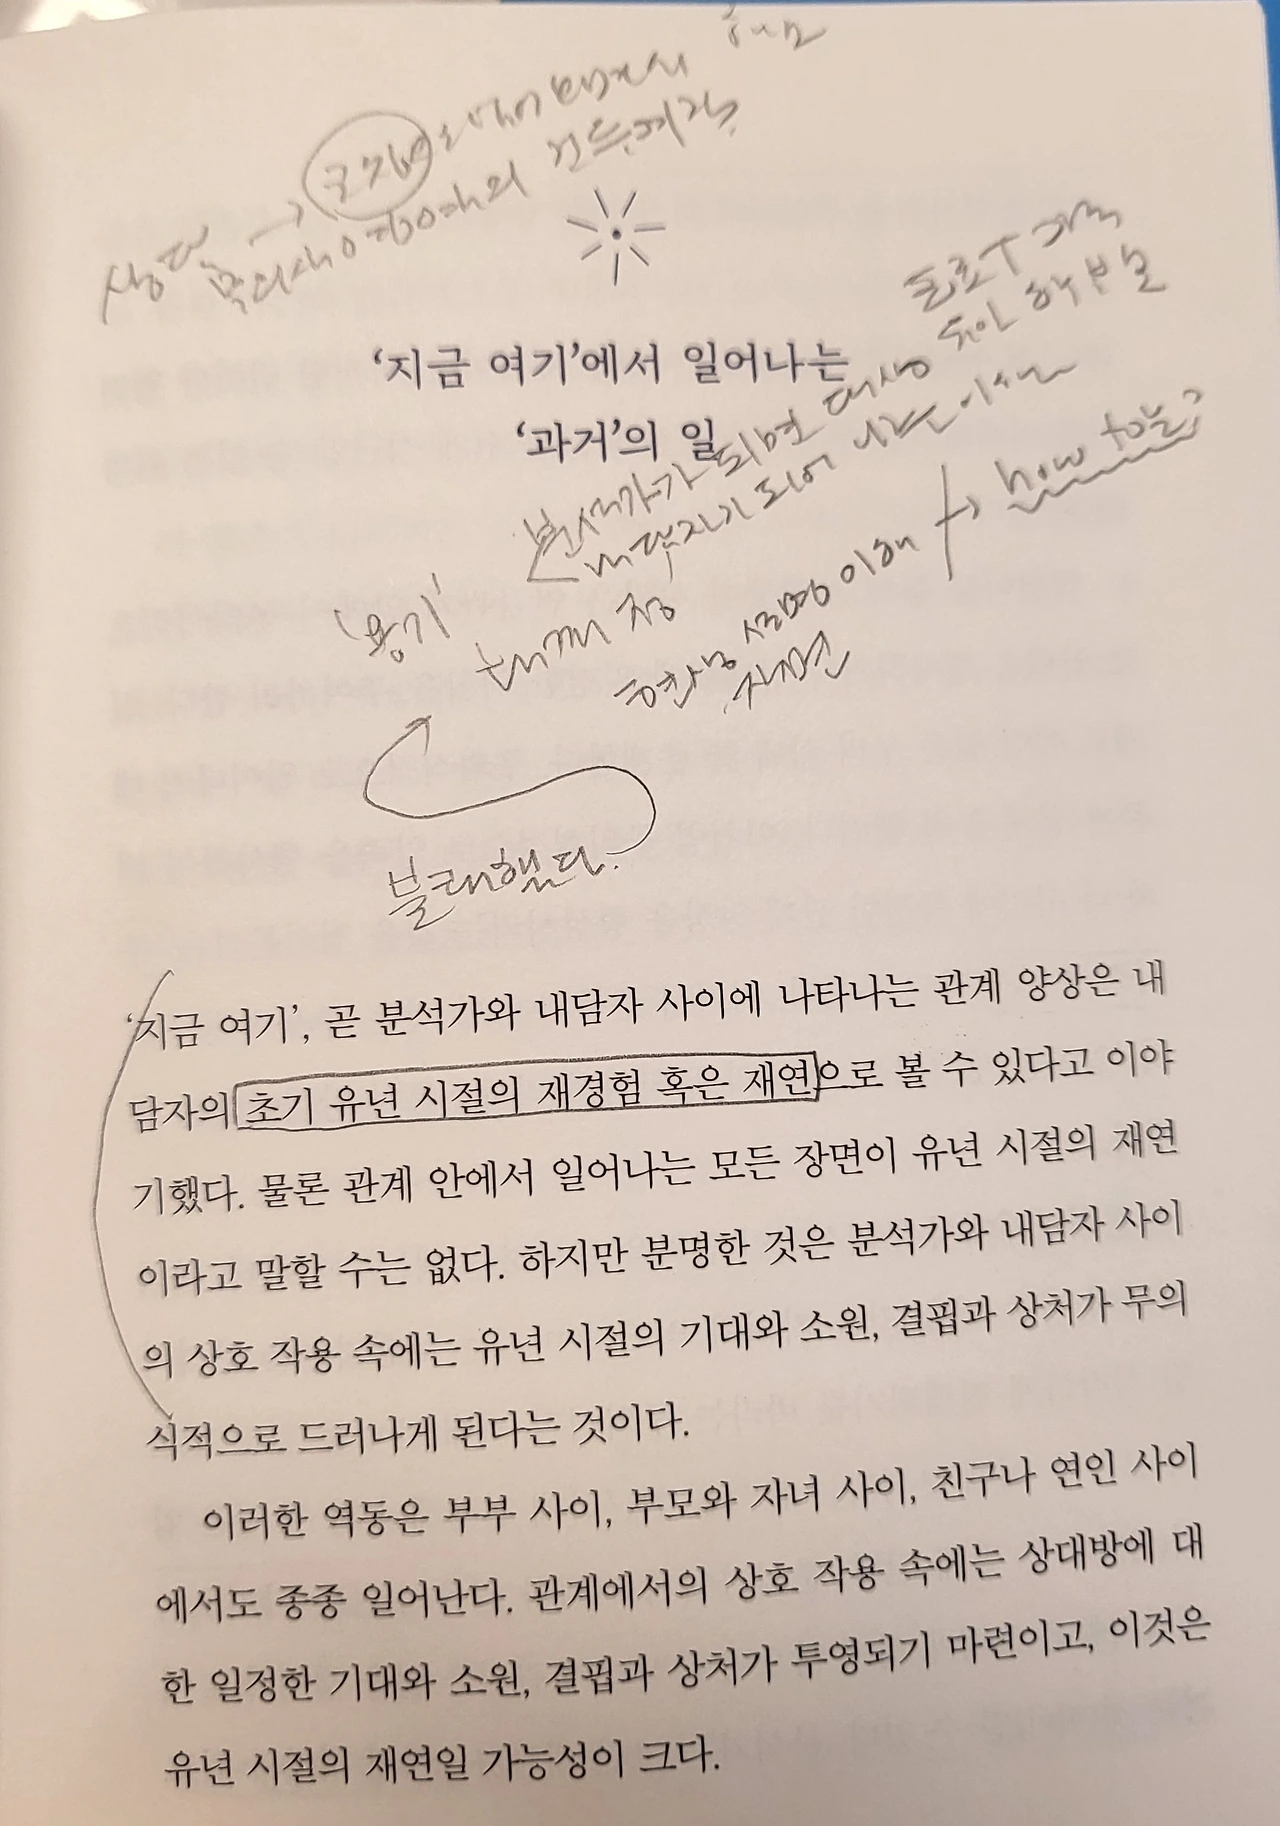 상담 →
‘지금 여기’에서 일어나는
‘과거’의 일
분석가가 되면 대상
내담자가 되어
how to는?
‘용기’
현상 설명 이해
직면
불쾌했다.
‘지금 여기’, 곧 분석가와 내담자 사이에 나타나는 관계 양상은 내
담자의 초기 유년 시절의 재경험 혹은 재연으로 볼 수 있다고 이야
기했다. 물론 관계 안에서 일어나는 모든 장면이 유년 시절의 재연
이라고 말할 수는 없다. 하지만 분명한 것은 분석가와 내담자 사이
의 상호 작용 속에는 유년 시절의 기대와 소원, 결핍과 상처가 무의
식적으로 드러나게 된다는 것이다.
이러한 역동은 부부 사이, 부모와 자녀 사이, 친구나 연인 사이
에서도 종종 일어난다. 관계에서의 상호 작용 속에는 상대방에 대
한 일정한 기대와 소원, 결핍과 상처가 투영되기 마련이고, 이것은
유년 시절의 재연일 가능성이 크다.